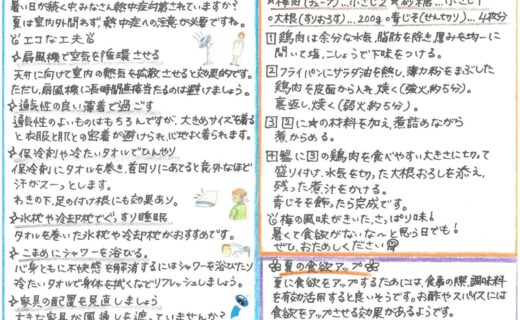 暑い日が続く中、みなさん熱中症対策されていますか？
夏は室内外問わず、熱中症への注意が必要ですね。
エコな工夫
扇風機で空気を循環させる
天井に向けて室内の熱気を拡散させると効果的です。
ただし、扇風機に長時間直接当たるのは避けましょう。
通気性の良い薄着で過ごす
通気性のよいものはもちろんですが、大きめサイズを着る
と衣服と肌との密着が避けられ、心地よく着られます。
保冷剤や冷たいタオルでひんやり
保冷剤にタオルを巻き、首回りにあてると意外なほど
汗がスーっとします。
わきの下、足の付け根にも効果あり。
氷枕や冷却枕でぐっすり睡眠
タオルを巻いた氷枕や冷却枕がおすすめです。
こまめにシャワーを浴びる。
心身ともに不快感を解消するにはシャワーを浴びたり
冷たいタオルで身体を拭くなどリフレッシュしましょう。
家具の配置を見直しましょう
大きな家具が風通しを遮っていませんか？
★梅肉(チューブ)…小さじ2 ★砂糖…小さじ1
○大根(すりおろす)…200g ○青じそ(せん切り)…4枚分
1 鶏肉は余分な水気、脂肪を除き厚みを均一に
開いて塩、こしょうで下味をつける。
2 フライパンにサラダ油を熱し、薄力粉をまぶした
鶏肉を皮面から入れ、焼く(強火、約5分)。
裏返し、焼く(弱火約5分)。
3 2に★の材料を加え、煮詰めながら
煮からめる。
4 器に3の鶏肉を食べやすい大きさに切って
盛り付け、水気を切った大根おろしを添え、
残った煮汁をかける。
青じそを飾ったら完成です。
梅の風味がきいた、さっぱり味！
暑くて食欲がないな～と思う日でも！
ぜひ、おためしください
夏の食欲アップ
夏に食欲をアップするためには、食事の際、調味料
を有効活用すると良いそうです。お酢やスパイスには
食欲をアップさせる効果があるようです。